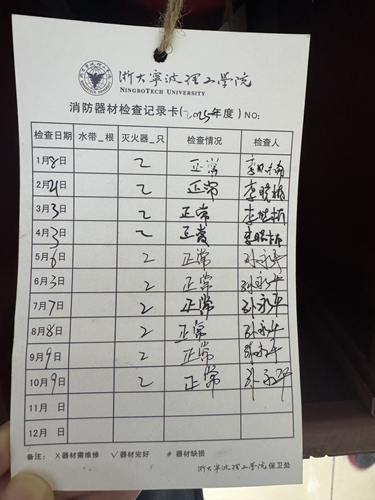 浙大宁波理工学院
NINGBOTECH UNIVERSITY
消防器材检查记录卡(2025年度) NO:
检查日期 水带_根 灭火器_只 检查情况 检查人
1月8日 2 正常 李晓楠
2月2日 2 正常 李晓楠
3月3日 2 正常 李晓楠
4月3日 2 正常 李晓楠
5月6日 2 正常 孙永平
6月3日 2 正常 孙永平
7月7日 2 正常 孙永平
8月8日 2 正常 孙永平
9月9日 2 正常 孙永平
10月9日 2 正常 孙永平
11月 日
12月 日
备注: X器材需维修 √器材完好 #器材缺损
浙大宁波理工学院 保卫处